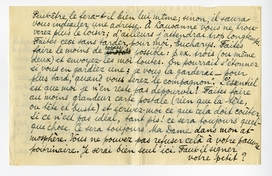 Peut-être le fera-t-il bien lui même; sinon, il saura
vous indiquer une adresse. A Lausanne vous ne trou-
verez plus le loisir; d'ailleurs j'attendrai trop longtemps.
Faites cela sans tarder, pour moi, Gucharye. Faites
faire le moins de photos possible: p.ex. trois (ou même
deux) et envoyez-les moi toutes. On pourrait s'étonner
si vous en gardiez une; je vous la garderai pour
plus tard, quand vous serez ma compagnon. L'essentiel
est que moi je n'en sois pas dépourvu! Faites faire
au moins grandeur carte postale (rien que la tête,
ou tête et buste) et écrivez-moi ce que cela doit coûter.
Si ce n'est pas idéal, tant pis! ce sera toujours quel-
que chose. Ce sera toujours Ma Dame dans mon at-
mosphère. Vous ne pouvez pas refuser cela à votre pauvre
tourinaire. Je serai bien seul ici. Faut-il signer
votre petit?